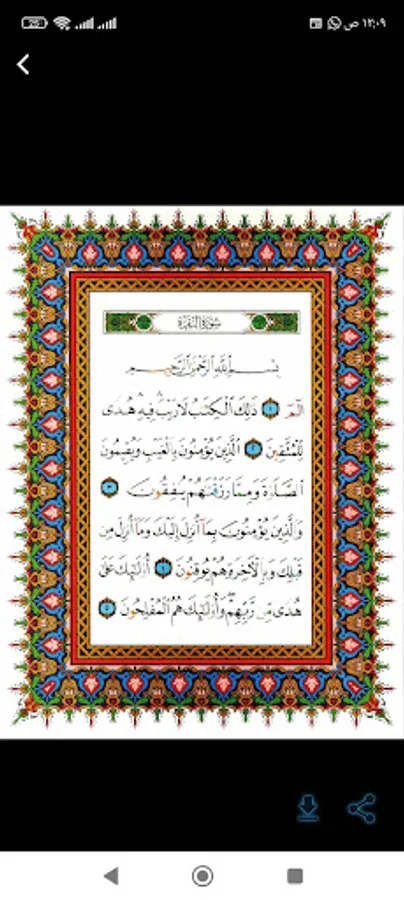 25
١٢:٠٩ ص
سُورَةُ البَقَرَةِ
بِسۡمِ ٱللَّهِ ٱلرَّحۡمَٰنِ ٱلرَّحِيمِ
الٓمٓ ١ ذَٰلِكَ ٱلۡكِتَٰبُ لَا رَيۡبَۛ فِيهِۛ هُدٗى
لِّلۡمُتَّقِينَ ٢ ٱلَّذِينَ يُؤۡمِنُونَ بِٱلۡغَيۡبِ وَيُقِيمُونَ
ٱلصَّلَوٰةَ وَمِمَّا رَزَقۡنَٰهُمۡ يُنفِقُونَ ٣
وَٱلَّذِينَ يُؤۡمِنُونَ بِمَآ أُنزِلَ إِلَيۡكَ وَمَآ أُنزِلَ مِن
قَبۡلِكَ وَبِٱلۡأٓخِرَةِ هُمۡ يُوقِنُونَ ٤ أُوْلَٰٓئِكَ عَلَىٰ
هُدٗى مِّن رَّبِّهِمۡۖ وَأُوْلَٰٓئِكَ هُمُ ٱلۡمُفۡلِحُونَ ٥